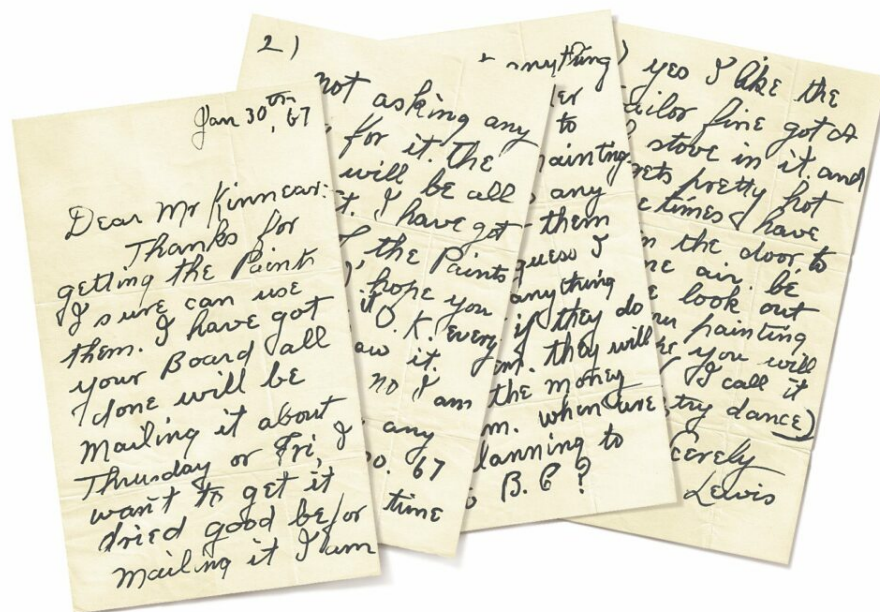 Jan 30th, 67
Dear Mr Kinnear:
Thanks for
getting the Paints
I sure can use
them. I have got
your Board all
done will be
Mailing it about
Thrusday or Fri, I
want to get it
dried good befor
Mailing it I am
2)
not asking any
for it. the
will be all
I have got
the Paints
hope you
O.K. every
it.
no I am
any
67
time
anything
to
any
them
guess I
anything
if they do
they will
the money
when are
to
B.C?
yes I like the
fine got a
stove in it. and
pretty hot
times I have
the door to
air. be
look out
painting
you will
I call it
dance)
Lewis